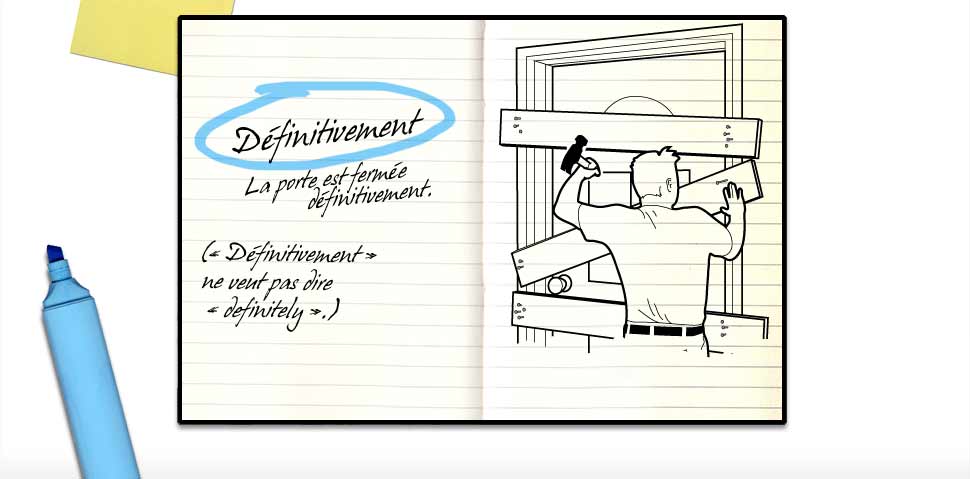 Définitivement
La porte est fermée
définitivement.
(« Définitivement »
ne veut pas dire
« definitely ».)